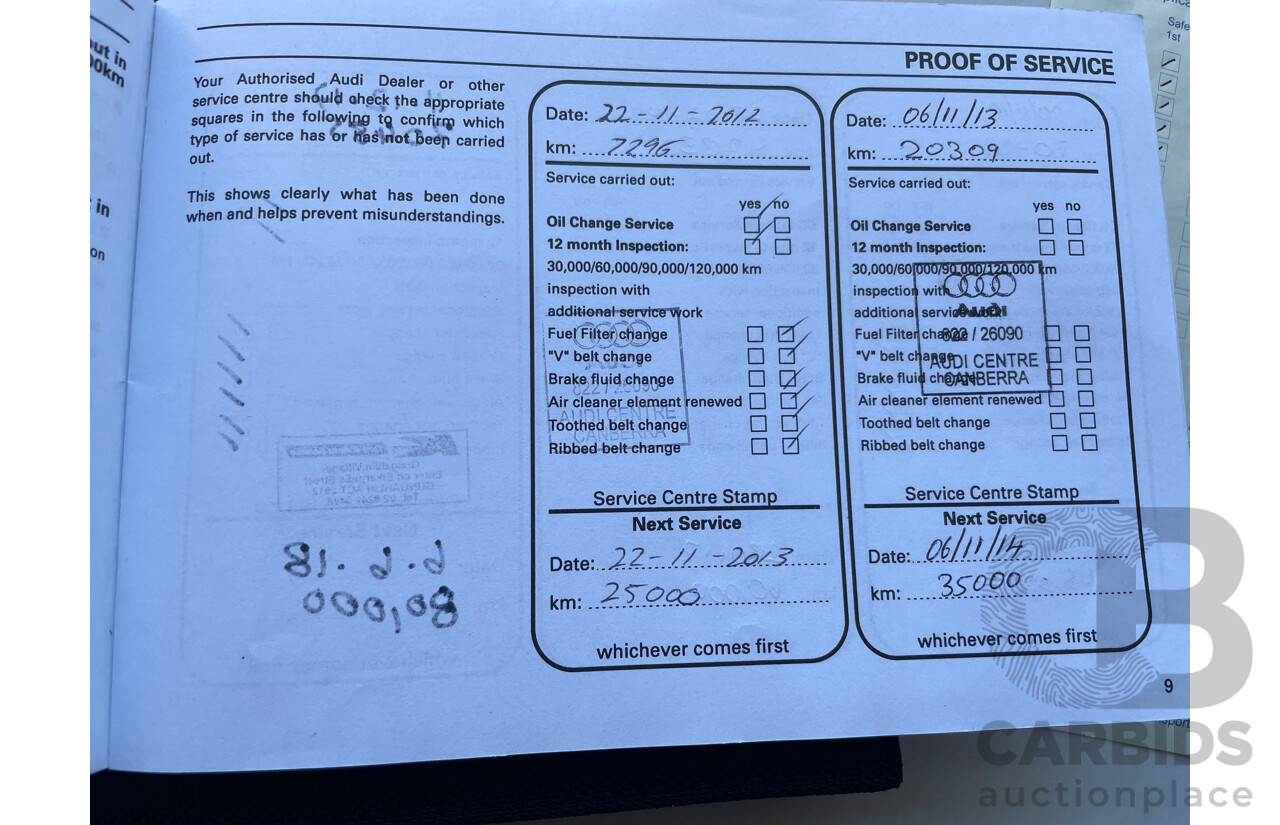 PROOF OF SERVICE
Your Authorised Audi Dealer or other
service centre should check the appropriate
squares in the following to confirm which
type of service has or has not been carried
out.
This shows clearly what has been done
when and helps prevent misunderstandings.
Date: 22-11-2012
km: 7296
Service carried out:
yes no
Oil Change Service
12 month Inspection:
30,000/60,000/90,000/120,000 km
inspection with
additional service work
Fuel Filter change
"V" belt change
Brake fluid change
Air cleaner element renewed
Toothed belt change
Ribbed belt change
822 / 26090
AUDI CENTRE
CANBERRA
Service Centre Stamp
Next Service
Date: 22-11-2013
km: 25000
whichever comes first
Date: 06/11/13
km: 20309
Service carried out:
yes no
Oil Change Service
12 month Inspection:
30,000/60,000/90,000/120,000 km
inspection with
additional service work
Fuel Filter change
"V" belt change
Brake fluid change
Air cleaner element renewed
Toothed belt change
Ribbed belt change
Audi
822 / 26090
AUDI CENTRE
CANBERRA
Service Centre Stamp
Next Service
Date: 06/11/14
km: 35000
whichever comes first
9
out in
00km
in
on
Safe
1st
CARBIDS
auctionplace